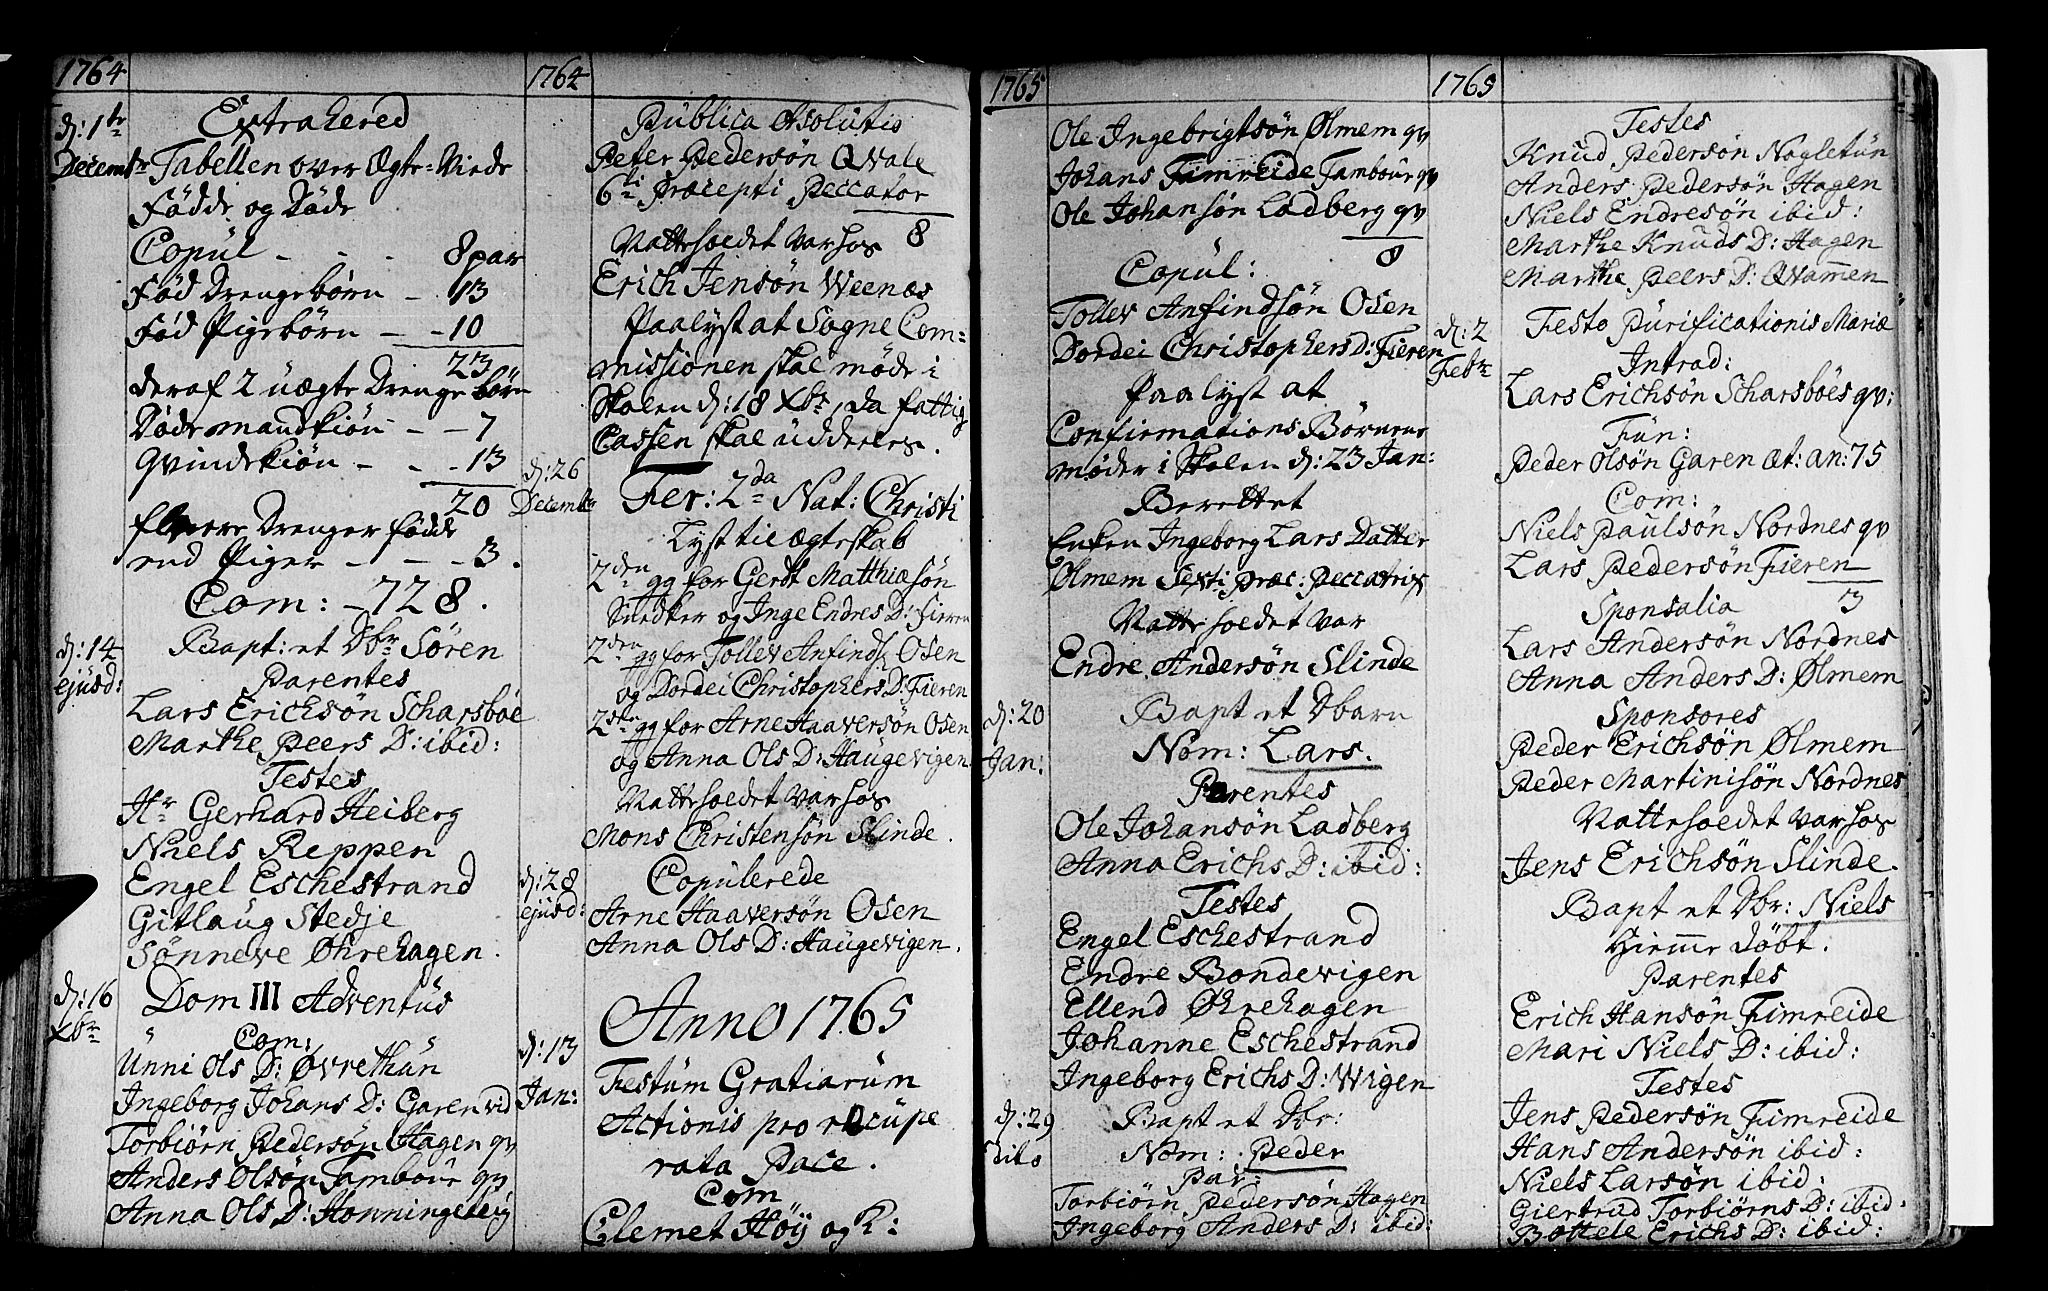 1764
d: 1te
Decembr
Extrahered
Tabellen over Ægte-Viede
Fødde og Døde
Copul - - - 8 par
Fød Drengebørn - 13
Fød Pigebørn - - 10
23
deraf 2 uægte Drengebørn
Døde mandkiøn - - 7
Qvindekiøn - - - 13
20
fleere Drenger fødde
end Piger - - - 3.
Com: - 728.
d: 14
ejusd:
Bapt: et Dbr Sören
Parentes
Lars Erichsön Scharsböe
Marthe Peers D: ibid:
Testes
Hr Gerhard Heiberg
Niels Reppen
Engel Eschestrand
Gitlaug Stedje
Sönneve Øhrehagen.
d: 16
Xbr
Dom III Adventus
Com:
Unni Ols D: Øvrethun
Ingeborg Johans D: Garen vid
Torbiörn Pedersön Hagen qv
Anders Olsön Tambour qv
Anna Ols D: Honningeteig
1764
Publica Absolutis
Peter Pedersön Qvale
6ti Præcepti Peccator
8
Natteholdet var hos
Erich Jensön Weenæs
Paalyst at Sogne Com-
missionen skal møde i
Skolen d: 18 Xbr, da fattig
Cassen skal uddeeles.
d: 26
Decembr
Fer: 2da Nat: Christi
Lyst til Ægteskab
2den gg for Gerdt Matthiæsön
Snedker og Inge Endres D: Fieren
2den gg for Tollev Anfinds Osen
og Dordei Christophers D: Fieren
2den gg for Arne Haaversön Osen
og Anna Ols D: Haugevigen
Natteholdet var hos
Mons Christensön Slinde.
d: 28
ejusd:
Copulerede
Arne Haaversön Osen
Anna Ols D: Haugevigen.
Anno 1765
d: 13
Jan:
Festum Gratiarum
Actionis pro recupe
rata Pace.
Com
Clemet Höy og K:
1765
Ole Ingebrigtsön Ølmem qv
Johans Fimreide Tambour qv
Ole Johansön Ladberg qv
8
Copul:
Tollev Anfindsön Osen
Dordei Christophers D: Fieren
Paalyst at
Confirmations Børnene
møder i Skolen d: 23 Jan:
Berettet
Enken Ingeborg Lars Datter
Ølmem Sexti præc: Peccatrix
Natteholdet var
Endre Andersön Slinde
d: 20
Jan:
Bapt et Dbarn
Nom: Lars.
Parentes
Ole Johansön Ladberg
Anna Erichs D: ibid:
Testes
Engel Eschestrand
Endre Bondevigen
Ellend Øhrehagen
Johanne Eschestrand
Ingeborg Erichs D: Wigen
d: 29
dito
Bapt et Dbr:
Nom: Peder
Par:
Torbiörn Pedersön Hagen
Ingeborg Anders D: ibid:
1765
Testes
Knud Pedersön Nagletun
Anders Pedersön Hagen
Niels Endresön ibid:
Marthe Knuds D: Hagen
Marthe Peers D: Qvammen
d: 2
Febr
Festo Purificationis Mariæ
Introd:
Lars Erichsön Scharsböes qv:
Fun:
Peder Olsön Garen æt: an: 75
Com:
Niels Paulsön Nordnes qv
Lars Pedersön Fieren
3
Sponsalia
Lars Andersön Nordnes
Anna Anders D: Ølmem
Sponsores
Peder Erichsön Ølmem
Peder Martinisön Nordnes
Natteholdet var hos
Jens Erichsön Slinde.
Bapt et Dbr: Niels
Hiemme døbt.
Parentes
Erich Hansön Fimreide
Mari Niels D: ibid:
Testes
Jens Pedersön Fimreide
Hans Andersön ibid:
Niels Larsön ibid:
Giertrud Torbiörns D: ibid:
Bottele Erichs D: ibid: